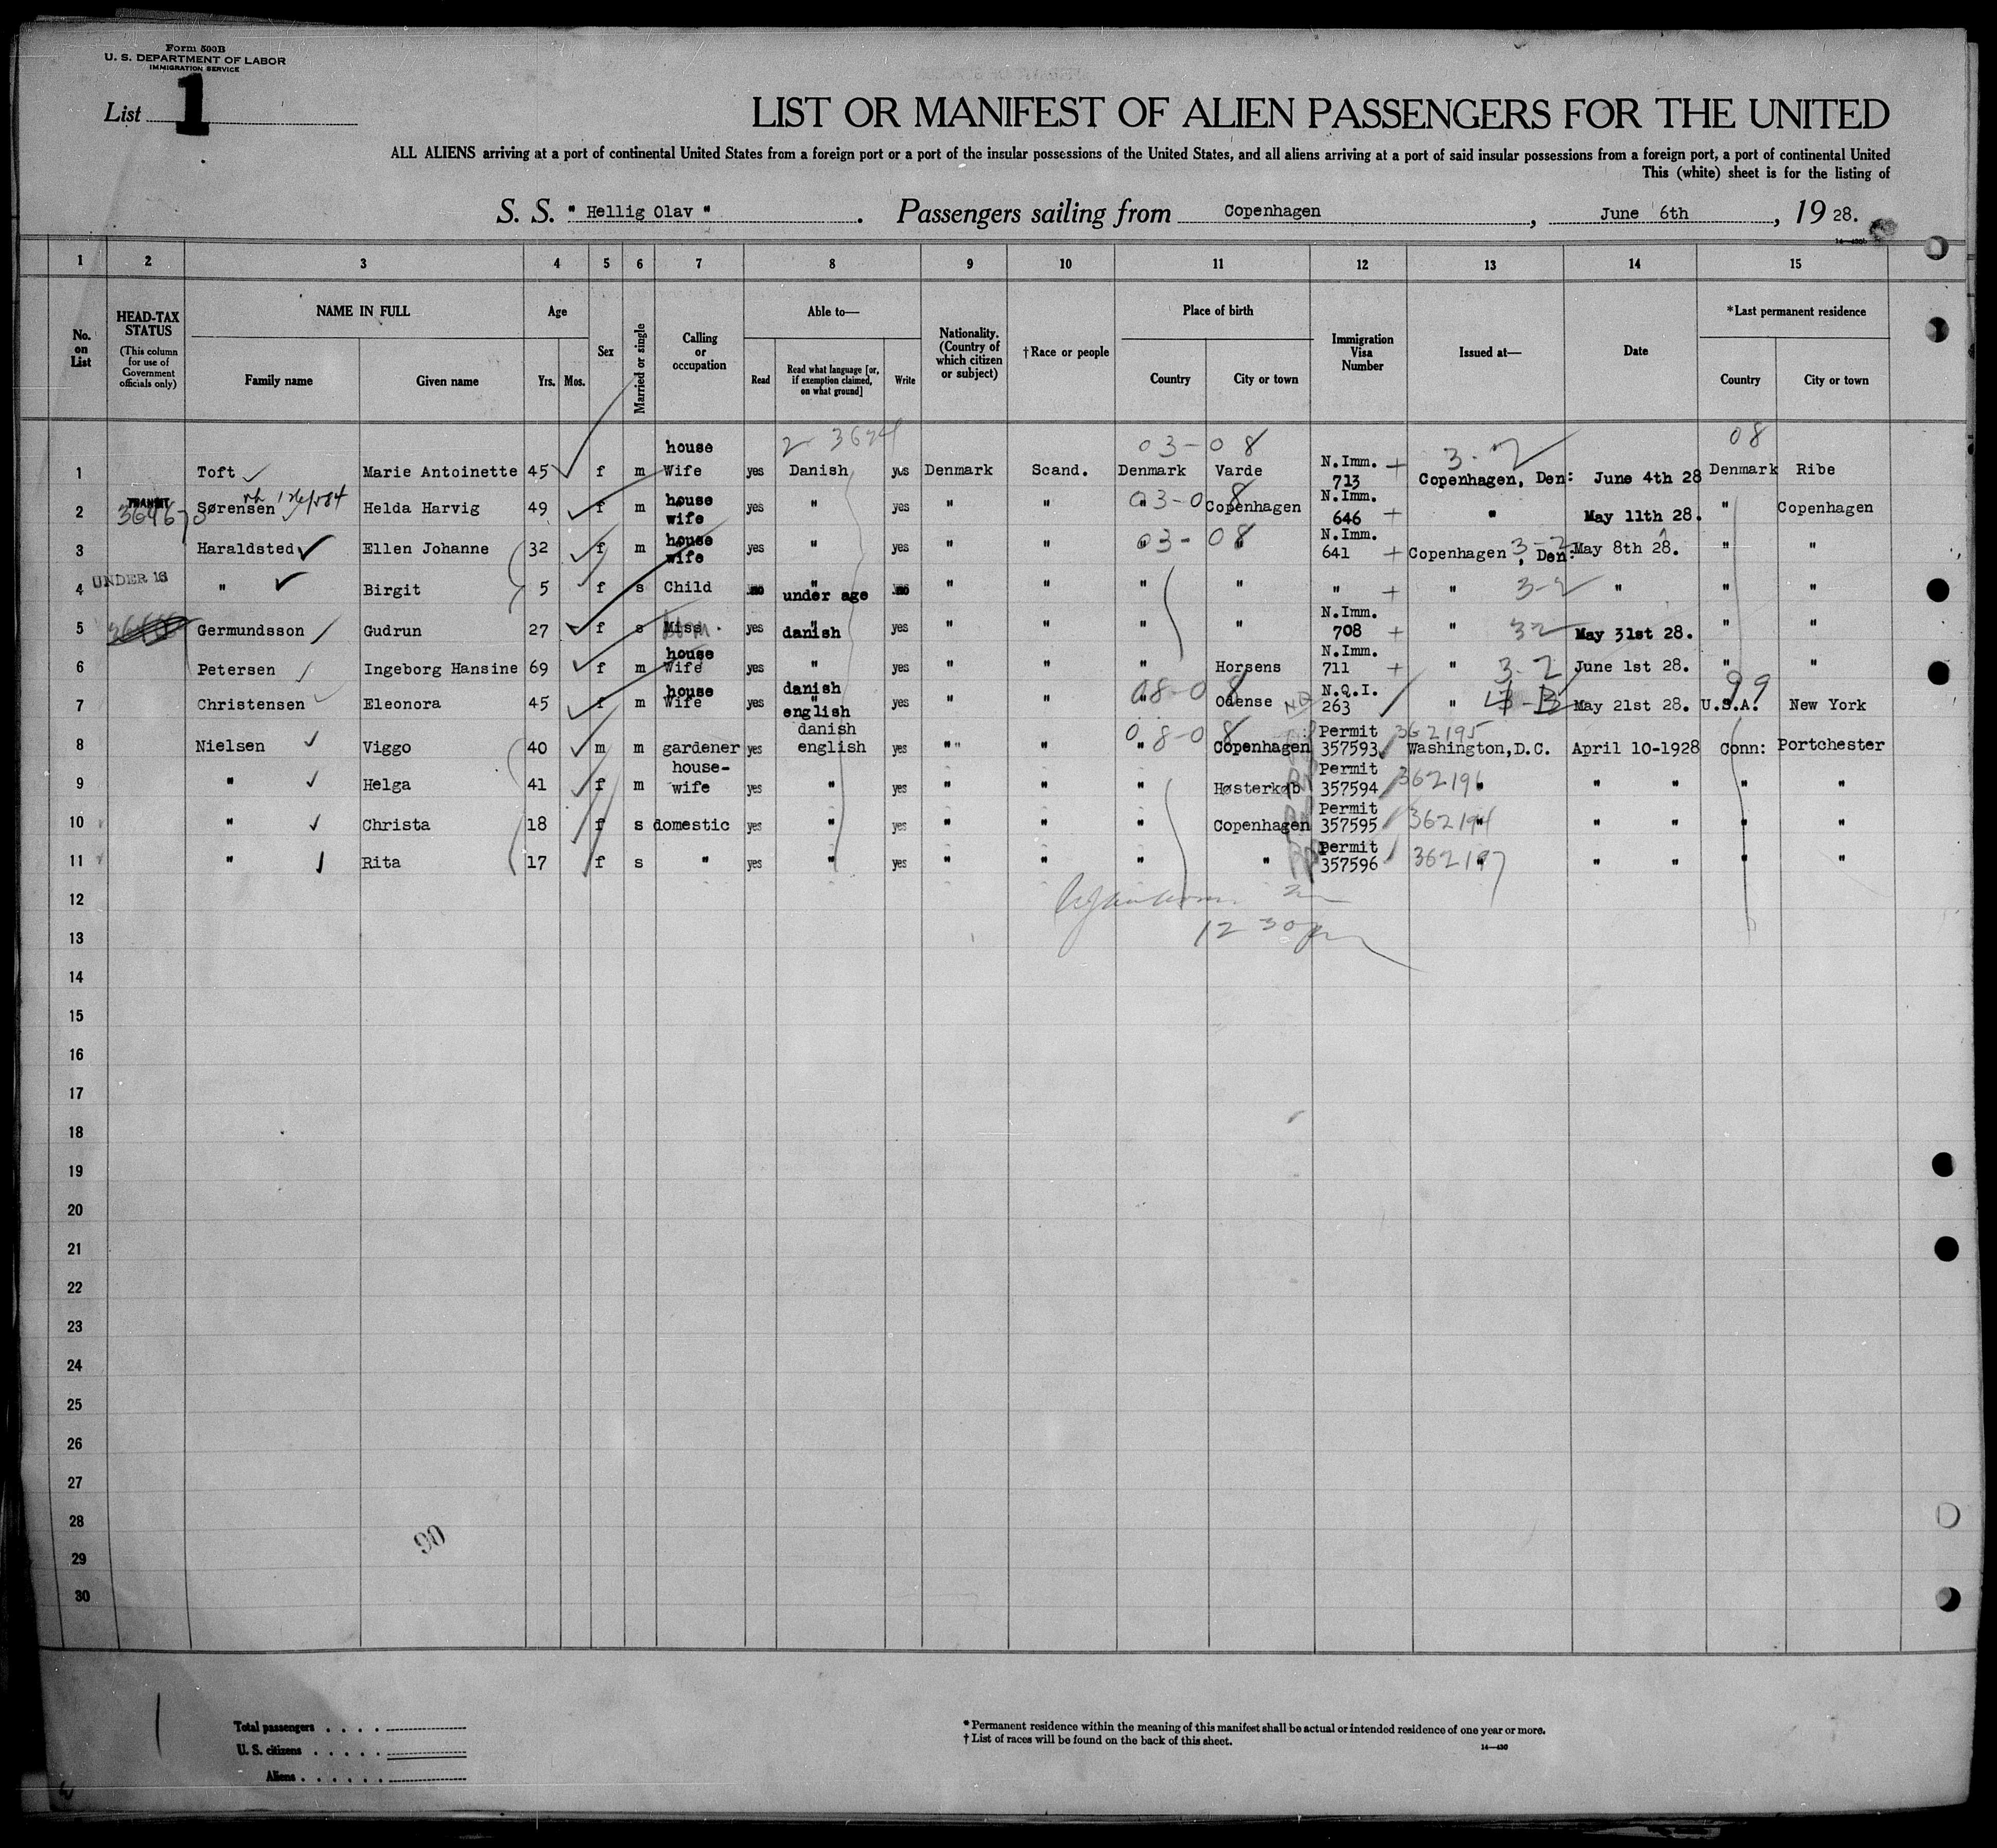 Form 500B
U. S. DEPARTMENT OF LABOR
IMMIGRATION SERVICE
List 1
LIST OR MANIFEST OF ALIEN PASSENGERS FOR THE UNITED
ALL ALIENS arriving at a port of continental United States from a foreign port or a port of the insular possessions of the United States, and all aliens arriving at a port of said insular possessions from a foreign port, a port of continental United
This (white) sheet is for the listing of
S. S. " Hellig Olav " . Passengers sailing from Copenhagen , June 6th , 19 28.
1 2 3 4 5 6 7 8 9 10 11 12 13 14 15
No. on List
HEAD-TAX STATUS
(This column for use of Government officials only)
NAME IN FULL
Family name Given name
Age
Yrs. Mos.
Sex
Married or single
Calling or occupation
Able to—
Read
Read what language [or, if exemption claimed, on what ground]
Write
Nationality. (Country of which citizen or subject)
†Race or people
Place of birth
Country City or town
Immigration Visa Number
Issued at—
Date
*Last permanent residence
Country City or town
2- 3674 03-08 08
1 Toft Marie Antoinette 45 f m house Wife yes Danish yes Denmark Scand. Denmark Varde N.Imm. 713 3-2 Copenhagen, Den: June 4th 28 Denmark Ribe
2 TRANSIT Sørensen Helda Harvig 49 f m house wife yes " yes " " " 03-08 Copenhagen N.Imm. 646 " May 11th 28. " Copenhagen
3 Haraldsted Ellen Johanne 32 f m house wife yes " yes " " " 03-08 " N.Imm. 641 Copenhagen, Den: 3-2 May 8th 28. " "
4 UNDER 16 " Birgit 5 f s Child no " under age no " " " " " " 3-2 " " "
5 Germundsson Gudrun 27 f s Miss. yes " danish yes " " " " N.Imm. 708 " 3-2 May 31st 28. " "
6 Petersen Ingeborg Hansine 69 f m house Wife yes " yes " " " Horsens N.Imm. 711 " 3-2 June 1st 28. " "
7 Christensen Eleonora 45 f m house Wife yes danish " english yes " " " 08-08 Odense N.Q.I. 263 " May 21st 28. 99 U.S.A. New York
8 Nielsen Viggo 40 m m gardener yes danish english yes " " " 08-08 Copenhagen Permit 357593 362195 Washington,D.C. April 10-1928 Conn: Portchester
9 " Helga 41 f m house-wife yes " yes " " " Høsterkøb Permit 357594 362196 " " " " "
10 " Christa 18 f s domestic yes " yes " " " Copenhagen Permit 357595 362194 " " " " "
11 " Rita 17 f s " yes " yes " " " " Permit 357596 362197 " " " " "
12
12 30 pm
13
14
15
16
17
18
19
20
21
22
23
24
25
26
27
28
90
29
30
Total passengers . . . .
U. S. citizens . . . . .
Aliens . . . . . .
* Permanent residence within the meaning of this manifest shall be actual or intended residence of one year or more.
† List of races will be found on the back of this sheet.
14—430